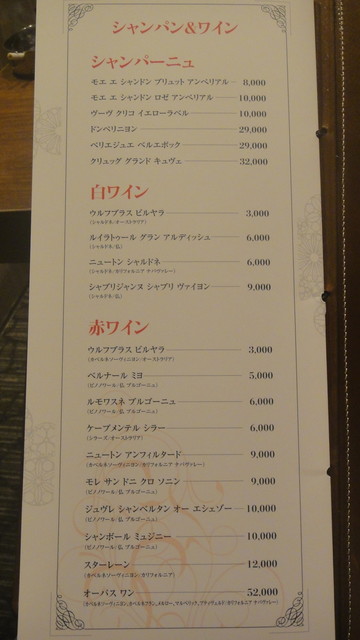 シャンパン&ワイン
シャンパーニュ
モエ エ シャンドン ブリュット アンペリアル 8,000
モエ エ シャンドン ロゼ アンペリアル 10,000
ヴーヴ クリコ イエローラベル 10,000
ドンペリニヨン 29,000
ペリエジュエ ベルエポック 29,000
クリュッグ グランド キュヴェ 32,000
白ワイン
ウルフブラス ビルヤラ 3,000
(シャルドネ/オーストラリア)
ルイラトゥール グラン アルディッシュ 6,000
(シャルドネ/仏)
ニュートン シャルドネ 6,000
(シャルドネ/カリフォルニア ナパヴァレー)
シャブリジャンヌ シャブリ ヴァイヨン 9,000
(シャルドネ/仏)
赤ワイン
ウルフブラス ビルヤラ 3,000
(カベルネソーヴィニヨン/オーストラリア)
ベルナール ミヨ 5,000
(ピノノワール/仏 ブルゴーニュ)
ルモワスネ ブルゴーニュ 6,000
(ピノノワール/仏 ブルゴーニュ)
ケープメンテル シラー 6,000
(シラーズ/オーストラリア)
ニュートン アンフィルタード 9,000
(カベルネソーヴィニヨン/カリフォルニア ナパヴァレー)
モレ サン ドニ クロ ソニン 9,000
(ピノノワール/仏 ブルゴーニュ)
ジュヴレ シャンベルタン オー エシェゾー 10,000
(ピノノワール/仏 ブルゴーニュ)
シャンボール ミュジニー 10,000
(ピノノワール/仏 ブルゴーニュ)
スターレーン 12,000
(カベルネソーヴィニヨン/カリフォルニア)
オーパス ワン 52,000
(カベルネソーヴィニヨン,カベルネフラン,メルロー,マルベック,プティヴェルド/カリフォルニア ナパヴァレー)